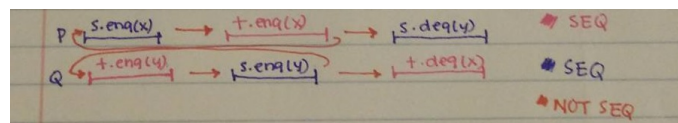 P s.enq(x) → t.enq(x) → s.deq(y) SEQ
Q t.enq(y) → s.enq(y) → t.deq(x) SEQ
NOT SEQ